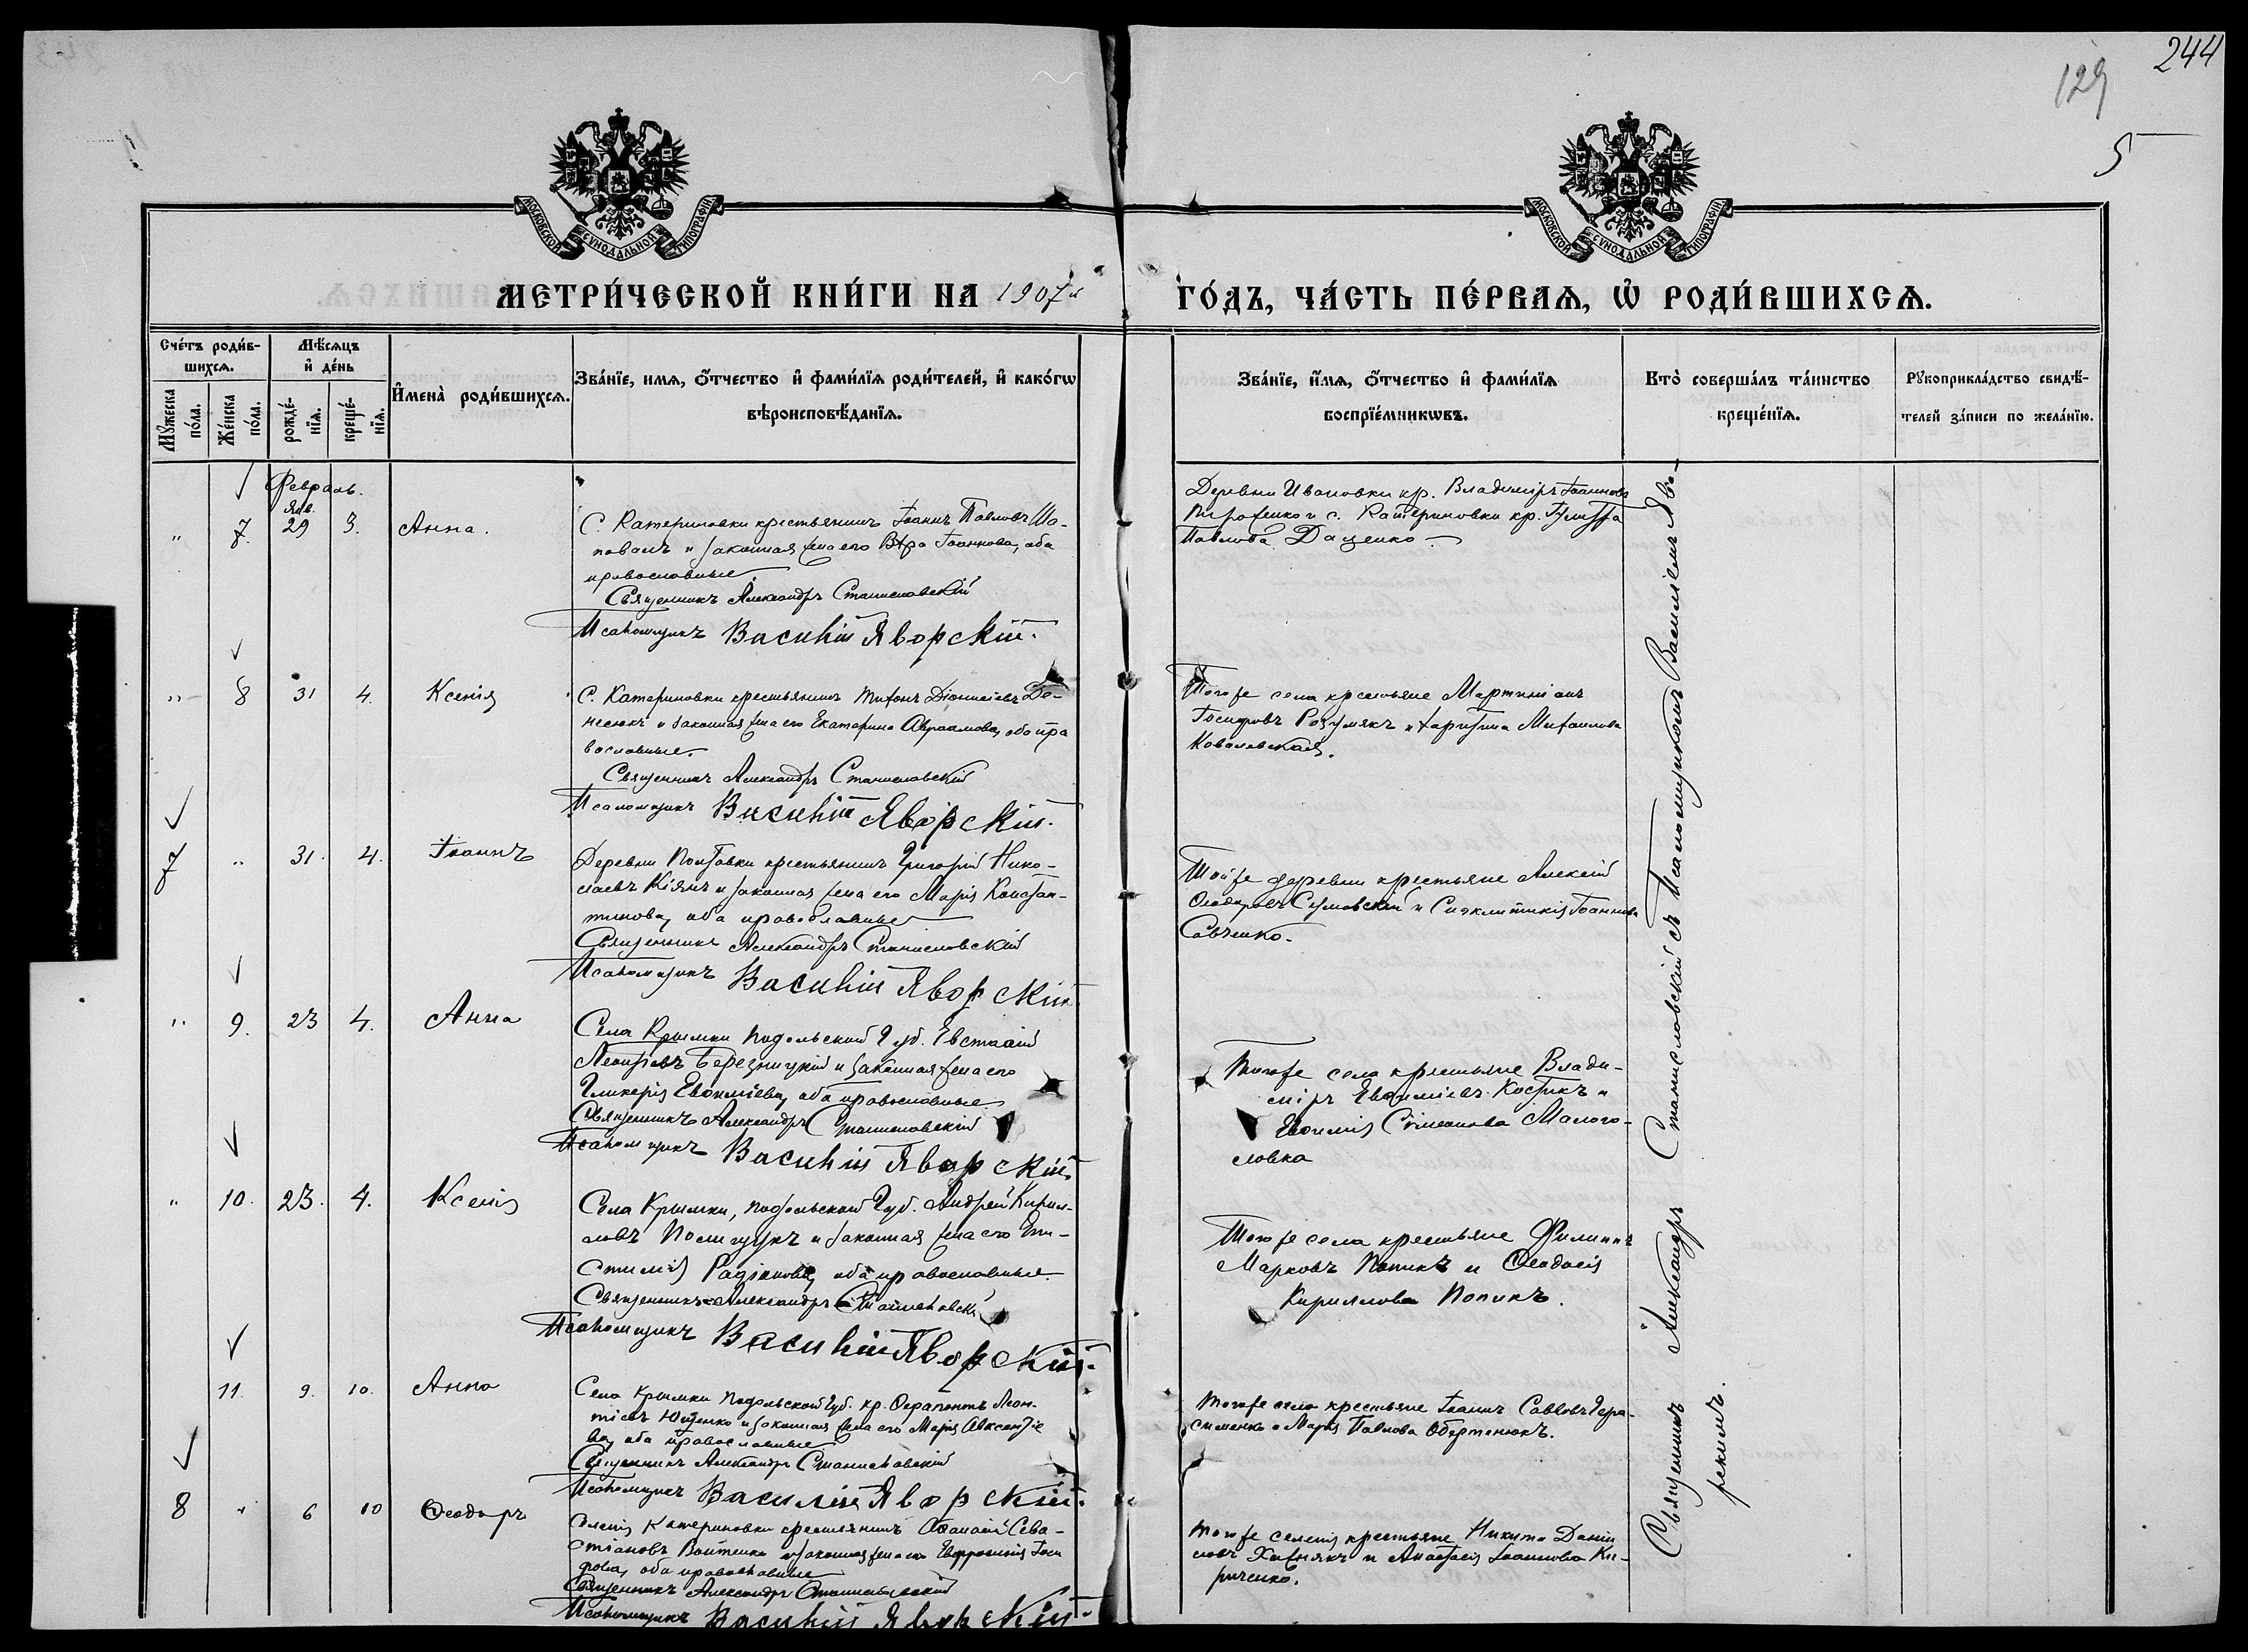 244
129
5
МОСКОВСКОЙ СѴНОДАЛЬНОЙ ТИПОГРАФІИ
МОСКОВСКОЙ СѴНОДАЛЬНОЙ ТИПОГРАФІИ
МЕТРИ́ЧЕСКОЙ КНИ́ГИ НА 1907й ГО́ДЪ, ЧА́СТЬ ПЕ́РВАѦ, Ѡ҆ РОДИ́ВШИХСѦ.
Сче́тъ роди́в-
шихсѧ.
Мꙋжеска по́ла.
Же́нска по́ла.
Мѣ́сѧцъ
и҆ де́нь
рожде́-
нїѧ.
креще́-
нїѧ.
И҆мена̀ роди́вшихсѧ.
Зва́нїе, имѧ, ѻ҆́тчество и҆ фами́лїѧ роди́телей, и҆ како́гѡ
вѣроисповѣ́данїѧ.
Зва́нїе, и҆́мѧ, ѻ҆́тчество и҆ фами́лїѧ
воспрїе́мникѡвъ.
Кто̀ соверша́лъ та́инство
креще́нїѧ.
Рꙋкоприкла́дство свидѣ́-
телей за́писи по жела́нїю.
Февраль.
Янв.
" 7. 29 3. Анна.
С. Катериновки крестьянинъ Іоаннъ Павловъ Ша-
повалъ и законная жена его Вѣра Іоаннова, оба
православные
Священникъ Александръ Станиславскій
Псаломщикъ Василій Яворскій.
Деревни Ивановки кр. Владиміръ Іоаннова
и с. Катериновки кр.
Павлова Даценко
" 8 31 4. Ксенія
С. Катериновки крестьянинъ Тихонъ Діонисіевъ Де-
несюкъ и законная жена его Екатерина Авраамова, оба пра
вославные.
Священникъ Александръ Станиславскій
Псаломщикъ Василій Яворскій.
Тогоже села крестьяне Мартиніанъ
Іосифовъ Розумякъ и Харитина Михаилова
Ковалевская.
7 " 31. 4. Іоаннъ
Деревни Полтавки крестьянинъ Григорій Нико-
лаевъ Кіянъ и законная жена его Марія Констан-
тинова, оба православные
Священникъ Александръ Станиславскій
Псаломщикъ Василій Яворскій.
Тойже деревни крестьяне Алексій
Ѳеодоровъ Сумовскій и Синклитикія Іоаннова
Савченко.
" 9. 23 4. Анна
Села Крымки Подольской Губ. Евстаѳій
Леонтіевъ Березницкій и законная жена его
Гликерія Евѳиміева, оба православные.
Священникъ Александръ Станиславскій
Псаломщикъ Василій Яворскій.
Тогоже села крестьяне Влади-
міръ Евѳиміевъ Костикъ и
Евѳимія Симеонова Малого-
ловка
" 10. 23. 4. Ксенія
Села Крымки, Подольской Губ. Андрей Кирил-
ловъ Полищукъ и законная жена его Епи-
стимія Радіонова, оба православные.
Священникъ Александръ Станиславскій
Псаломщикъ Василій Яворскій.
Тогоже села крестьяне Филиппъ
Марковъ Попикъ и Ѳеодосія
Кириллова Попикъ.
11. 9. 10. Анна
Села Крымки Подольской Губ. кр. Ѳерапонтъ Леон-
тіевъ Ющенко и законная жена его Марія Авксентіе
ва, оба православные
Священникъ Александръ Станиславскій
Псаломщикъ Василій Яворскій.
Тогоже села крестьяне Іоаннъ Савовъ Гера-
сименко и Марія Павлова Обертенюкъ.
8 " 6 10 Ѳеодоръ
Селенія Катериновки крестьянинъ Аѳанасій Сева-
стіановъ Войтенко и законная жена его Евфросинія
оба православные
Священникъ Александръ Станиславскій
Псаломщикъ Василій Яворскій.
Тогоже селенія крестьяне Никита Даніи
ловъ и Анастасія Іоаннова Ки-
риченко.
Священникъ Александръ Станиславскій съ Псаломщикомъ Василіемъ Яво-
рскимъ.